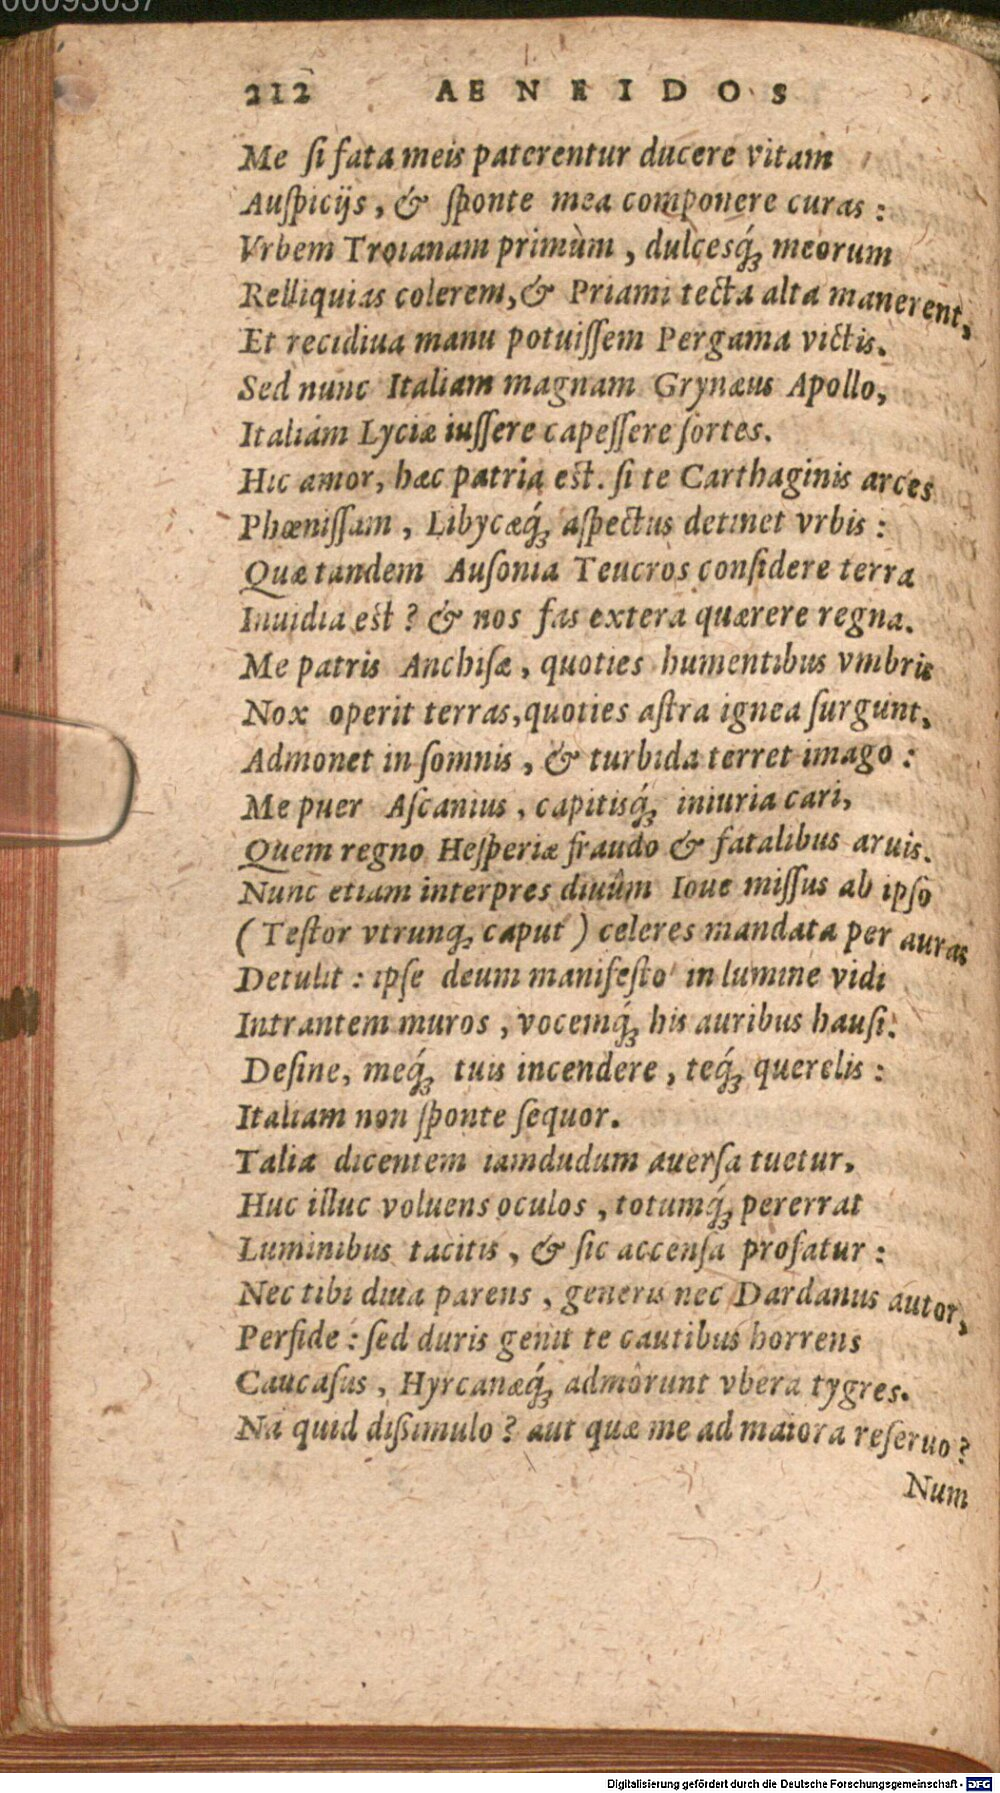 00093037
212 AENEIDOS
Me ſi fata meis paterentur ducere vitam
Auſpicijs, & ſponte mea componere curas :
Vrbem Troianam primùm, dulcesq́ꝫ meorum
Relliquias colerem, & Priami tecta alta manerent,
Et recidiua manu potuiſſem Pergama victis.
Sed nunc Italiam magnam Grynæus Apollo,
Italiam Lyciæ iuſſere capeſſere ſortes.
Hic amor, hæc patria est. ſi te Carthaginis arces
Phœniſſam, Libycæq́ꝫ aſpectus detinet vrbis :
Quæ tandem Auſonia Teucros conſidere terra
Inuidia est ? & nos fas extera quærere regna.
Me patris Anchiſæ, quoties humentibus vmbris
Nox operit terras, quoties aſtra ignea ſurgunt,
Admonet in ſomnis, & turbida terret imago :
Me puer Aſcanius, capitisq́ꝫ iniuria cari,
Quem regno Heſperiæ fraudo & fatalibus aruis.
Nunc etiam interpres diuûm Ioue miſſus ab ipſo
( Teſtor vtrunqꝫ caput ) celeres mandata per auras
Detulit : ipſe deum manifeſto in lumine vidi
Intrantem muros, vocemq́ꝫ his auribus hauſi.
Deſine, meq́ꝫ tuis incendere, teq́ꝫ querelis :
Italiam non ſponte ſequor.
Talia dicentem iamdudum auerſa tuetur,
Huc illuc voluens oculos, totumq́ꝫ pererrat
Luminibus tacitis, & ſic accenſa profatur :
Nec tibi diua parens, generis nec Dardanus autor,
Perfide : ſed duris genuit te cautibus horrens
Caucaſus, Hyrcanæq́ꝫ admôrunt vbera tygres.
Nã quid diſſimulo ? aut quæ me ad maiora reſeruo ?
Num
Digitalisierung gefördert durch die Deutsche Forschungsgemeinschaft - DFG